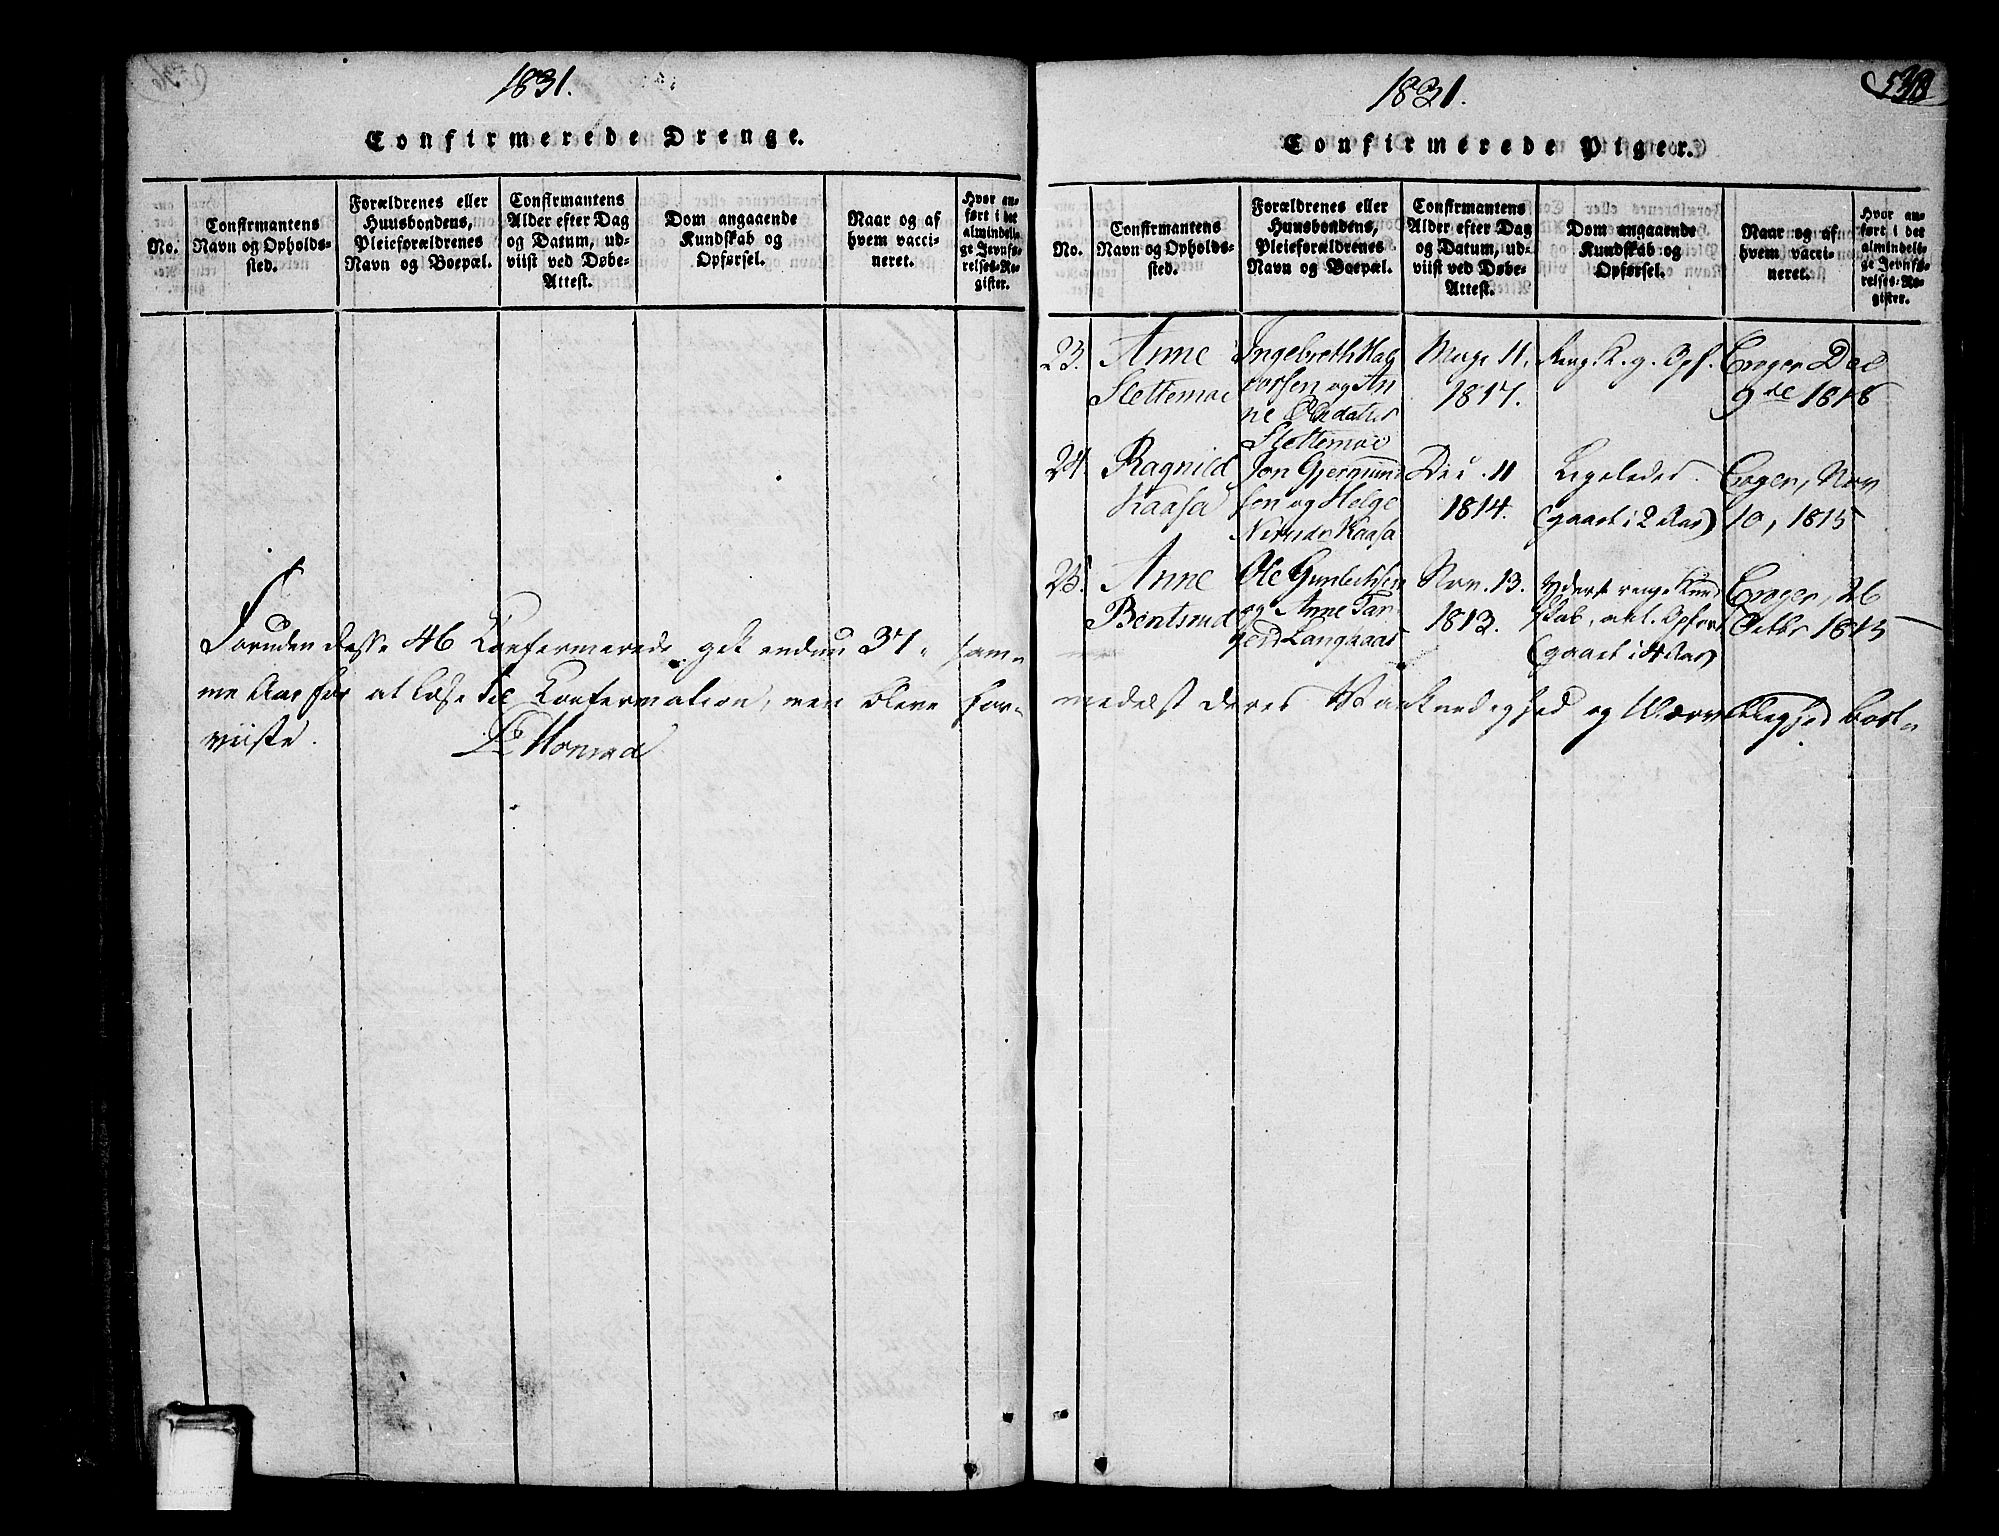 1831.
Confirmerede Drenge.
No.
Confirmantens
Navn og Opholds-
sted.
Forældrenes eller
Huusbondens,
Pleieforældrenes
Navn og Boepæl.
Confirmantens
Alder efter Dag
og Datum, ud-
viist ved Døbe-
Attest.
Dom angaaende
Kundskab og
Opførsel.
Naar og af
hvem vacci-
neret.
Hvor an-
ført i det
almindeli-
ge Jevnfø-
relses-Re-
gister.
Foruden desse 46 Konfermerede, gik endnu 37
me Aar for at læse til Konfermation, men bleve
viiste.
1831.
Confirmerede Piger.
No.
Confirmantens
Navn og Opholds-
sted.
Forældrenes eller
Huusbondens,
Pleieforældrenes
Navn og Boepæl.
Confirmantens
Alder efter Dag
og Datum, ud-
viist ved Døbe-
Attest.
Dom angaaende
Kundskab og
Opførsel.
Naar og af
hvem vacci-
neret.
Hvor an-
ført i det
almindeli-
ge Jevnfø-
relses-Re-
gister.
23. Anne
Slettemoe
Ingebreth Hal
vorsen og An
ne
Slettemoe
11.
1817.
K. g. Opf.
Enger
9de 1818
24. Ragnild
Kaasa
Jon Gjermund
sen og Helge
Kaasa
Dec. 11
1814.
Ligeledes.
(gaaet i 2 Aar)
Enger, Nov
10, 1815
25. Anne
Bentsrud
Ole
og Anne Tar
gerd Langaas
Nov. 13.
1813.
Yderst ringe Kund
skab, Opførs
(gaaet i 4 Aar)
Enger, 26
Octbr 1815
medelst deres Vankundighed og bort-